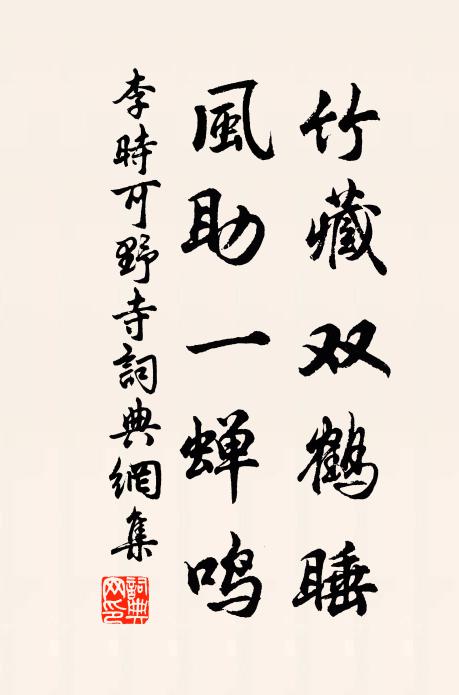 竹藏双鹤睡
風助一蝉鸣
李時可野寺詞典網集
詞典網印